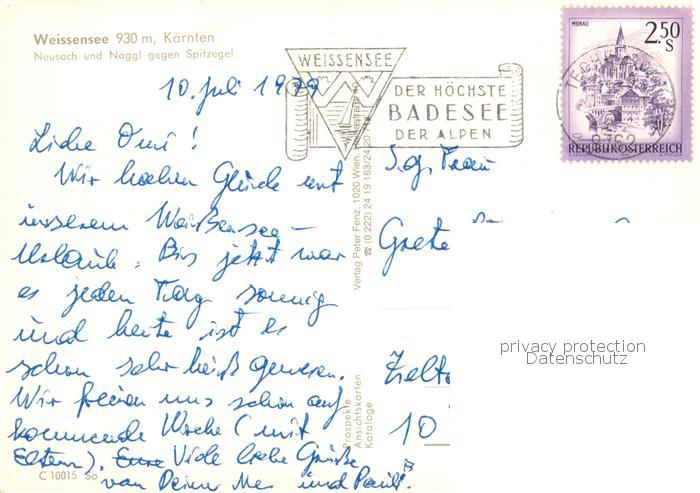 Weissensee 930 m, Kärnten
Neusach und Naggl gegen Spitzegel
WEISSENSEE
DER HÖCHSTE
BADESEE
DER ALPEN
MURAU
2.50
S
REPUBLIK ÖSTERREICH
10. Juli 1979
Liebe Omi!
Wir haben Glück mit
unserem Weißensee-
Urlaub. Bis jetzt war
es jeden Tag sonnig
und heute ist es
schon sehr heiß gewesen.
Wir freuen uns schon auf
kommende Woche (mit
Eltern). Viele liebe Grüße
von Deiner und Pauli.
C 10015 So
Verlag Peter Fenz, 1020 Wien,
☎ (0 222) 24 19 163/24 20
Prospekte
Ansichtskarten
Kataloge
S.g. Frau
Grete
10
privacy protection
Datenschutz